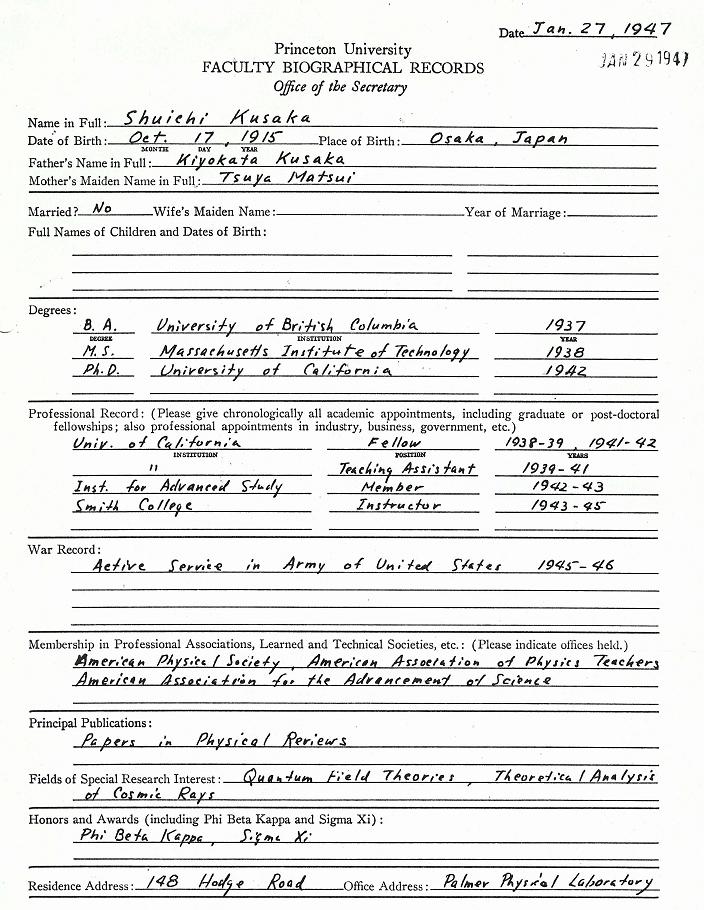 Date Jan. 27, 1947
JAN 29 1947
Princeton University
FACULTY BIOGRAPHICAL RECORDS
Office of the Secretary
Name in Full: Shuichi Kusaka
Date of Birth: Oct. 17, 1915 Place of Birth: Osaka, Japan
MONTH DAY YEAR
Father's Name in Full: Kiyokata Kusaka
Mother's Maiden Name in Full: Tsuya Matsui
Married? No Wife's Maiden Name: Year of Marriage:
Full Names of Children and Dates of Birth:
Degrees:
B. A. University of British Columbia 1937
DEGREE INSTITUTION YEAR
M. S. Massachusetts Institute of Technology 1938
Ph. D. University of California 1942
Professional Record: (Please give chronologically all academic appointments, including graduate or post-doctoral
fellowships; also professional appointments in industry, business, government, etc.)
Univ. of California Fellow 1938-39, 1941-42
INSTITUTION POSITION YEARS
" Teaching Assistant 1939-41
Inst. for Advanced Study Member 1942-43
Smith College Instructor 1943-45
War Record:
Active Service in Army of United States 1945-46
Membership in Professional Associations, Learned and Technical Societies, etc.: (Please indicate offices held.)
American Physical Society, American Association of Physics Teachers
American Association for the Advancement of Science
Principal Publications:
Papers in Physical Reviews
Fields of Special Research Interest: Quantum Field Theories, Theoretical Analysis
of Cosmic Rays
Honors and Awards (including Phi Beta Kappa and Sigma Xi):
Phi Beta Kappa, Sigma Xi
Residence Address: 148 Hodge Road Office Address: Palmer Physical Laboratory